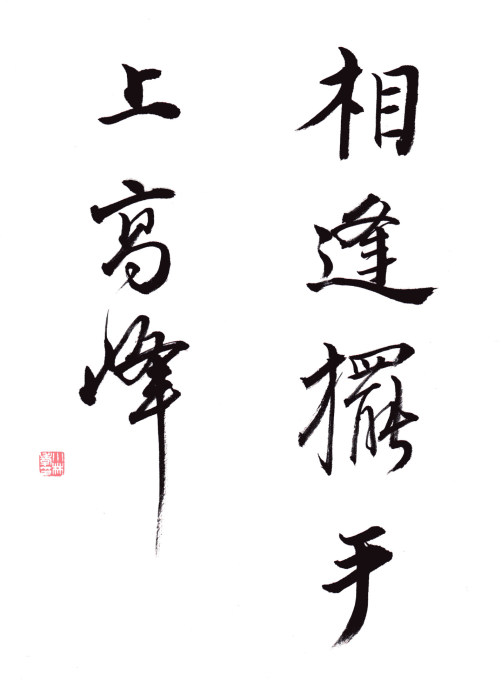 相逢擺手
上高峰